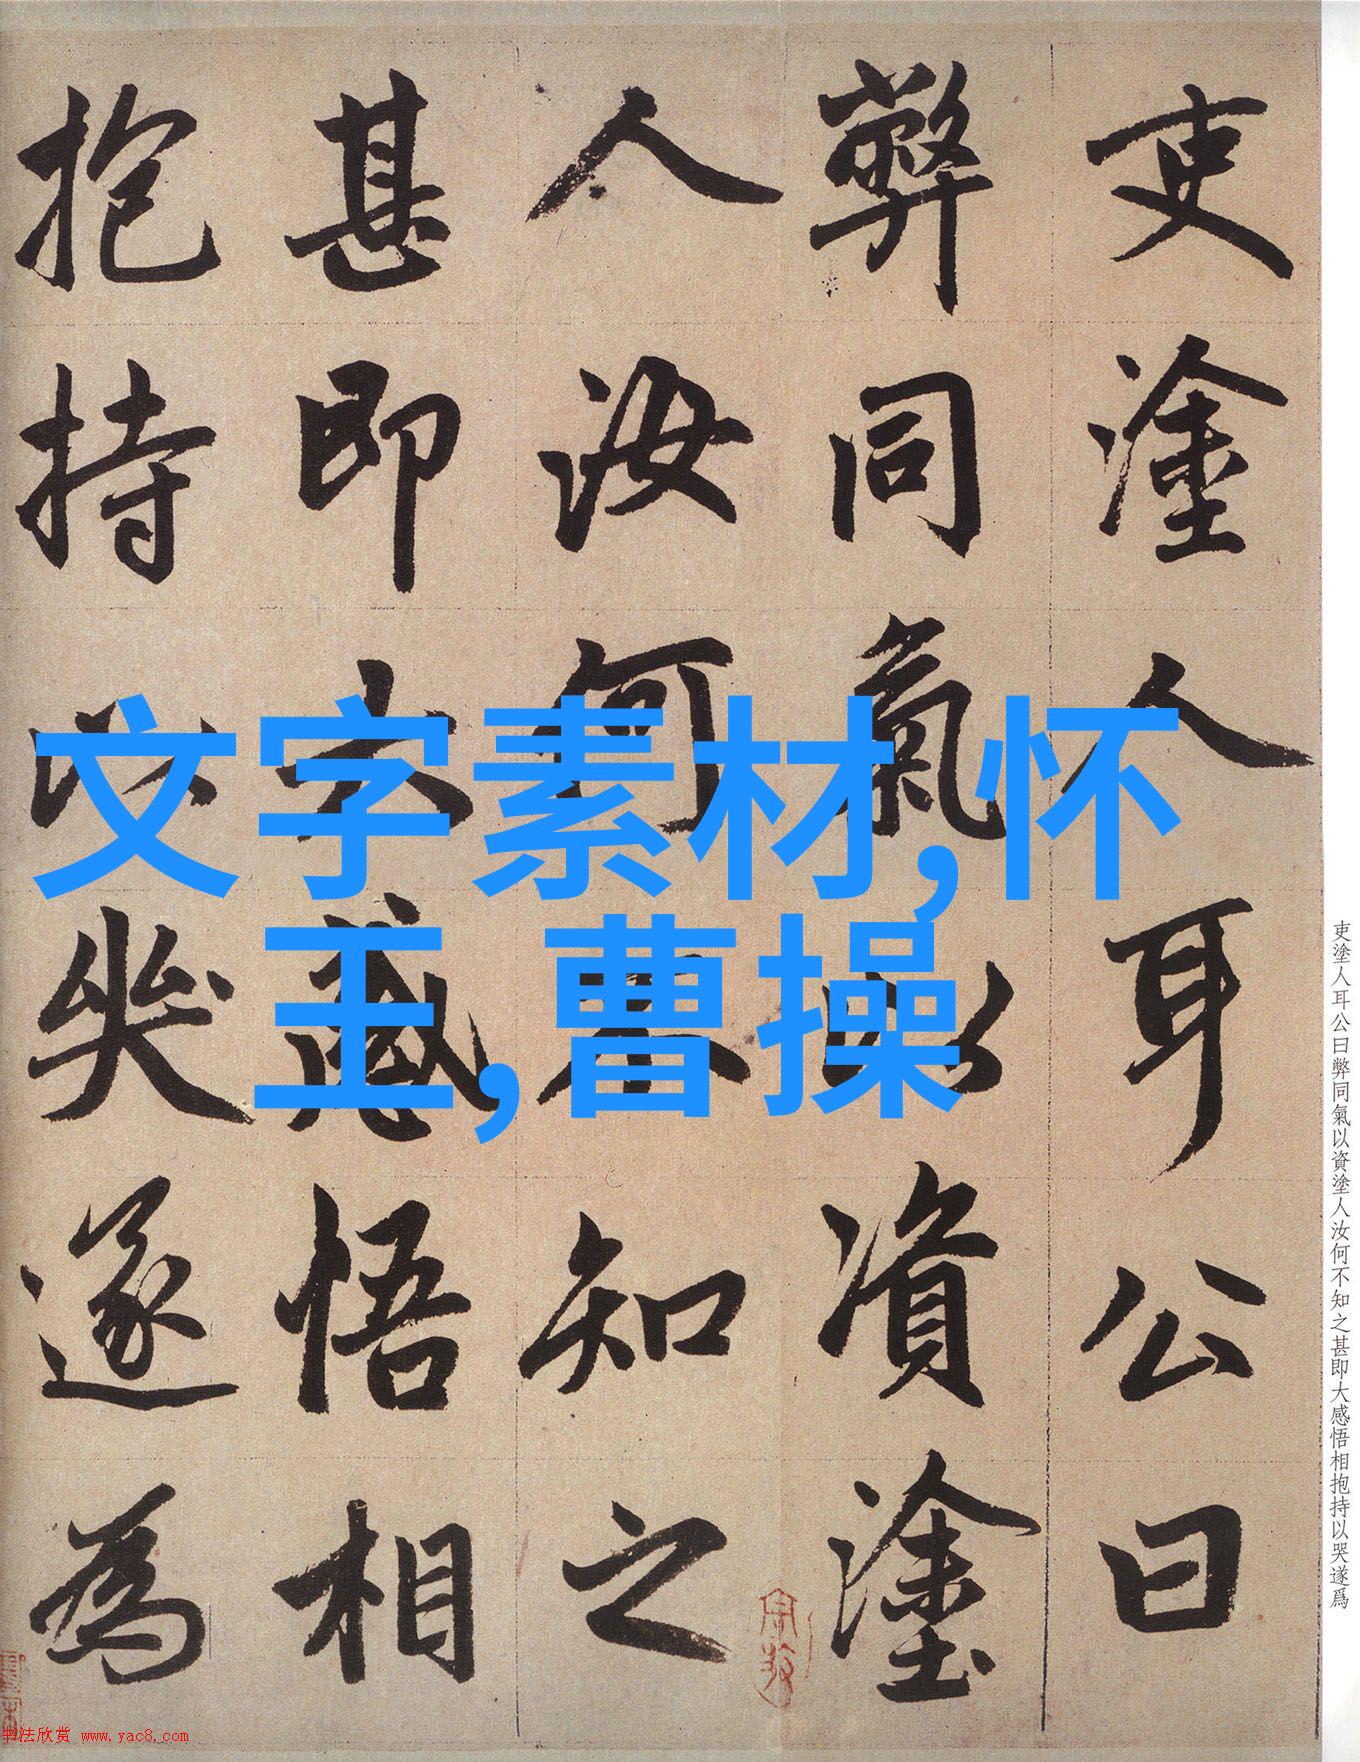 吏塗人耳公曰
弊同氣以資塗
人汝何不知之
甚即大感悟相
抱持以哭遂為
文字素材,怀
主,曹操
吏塗人耳公曰弊同氣以資塗人汝何不知之甚即大感悟相抱持以哭遂爲
书法欣赏 www.yac8.com